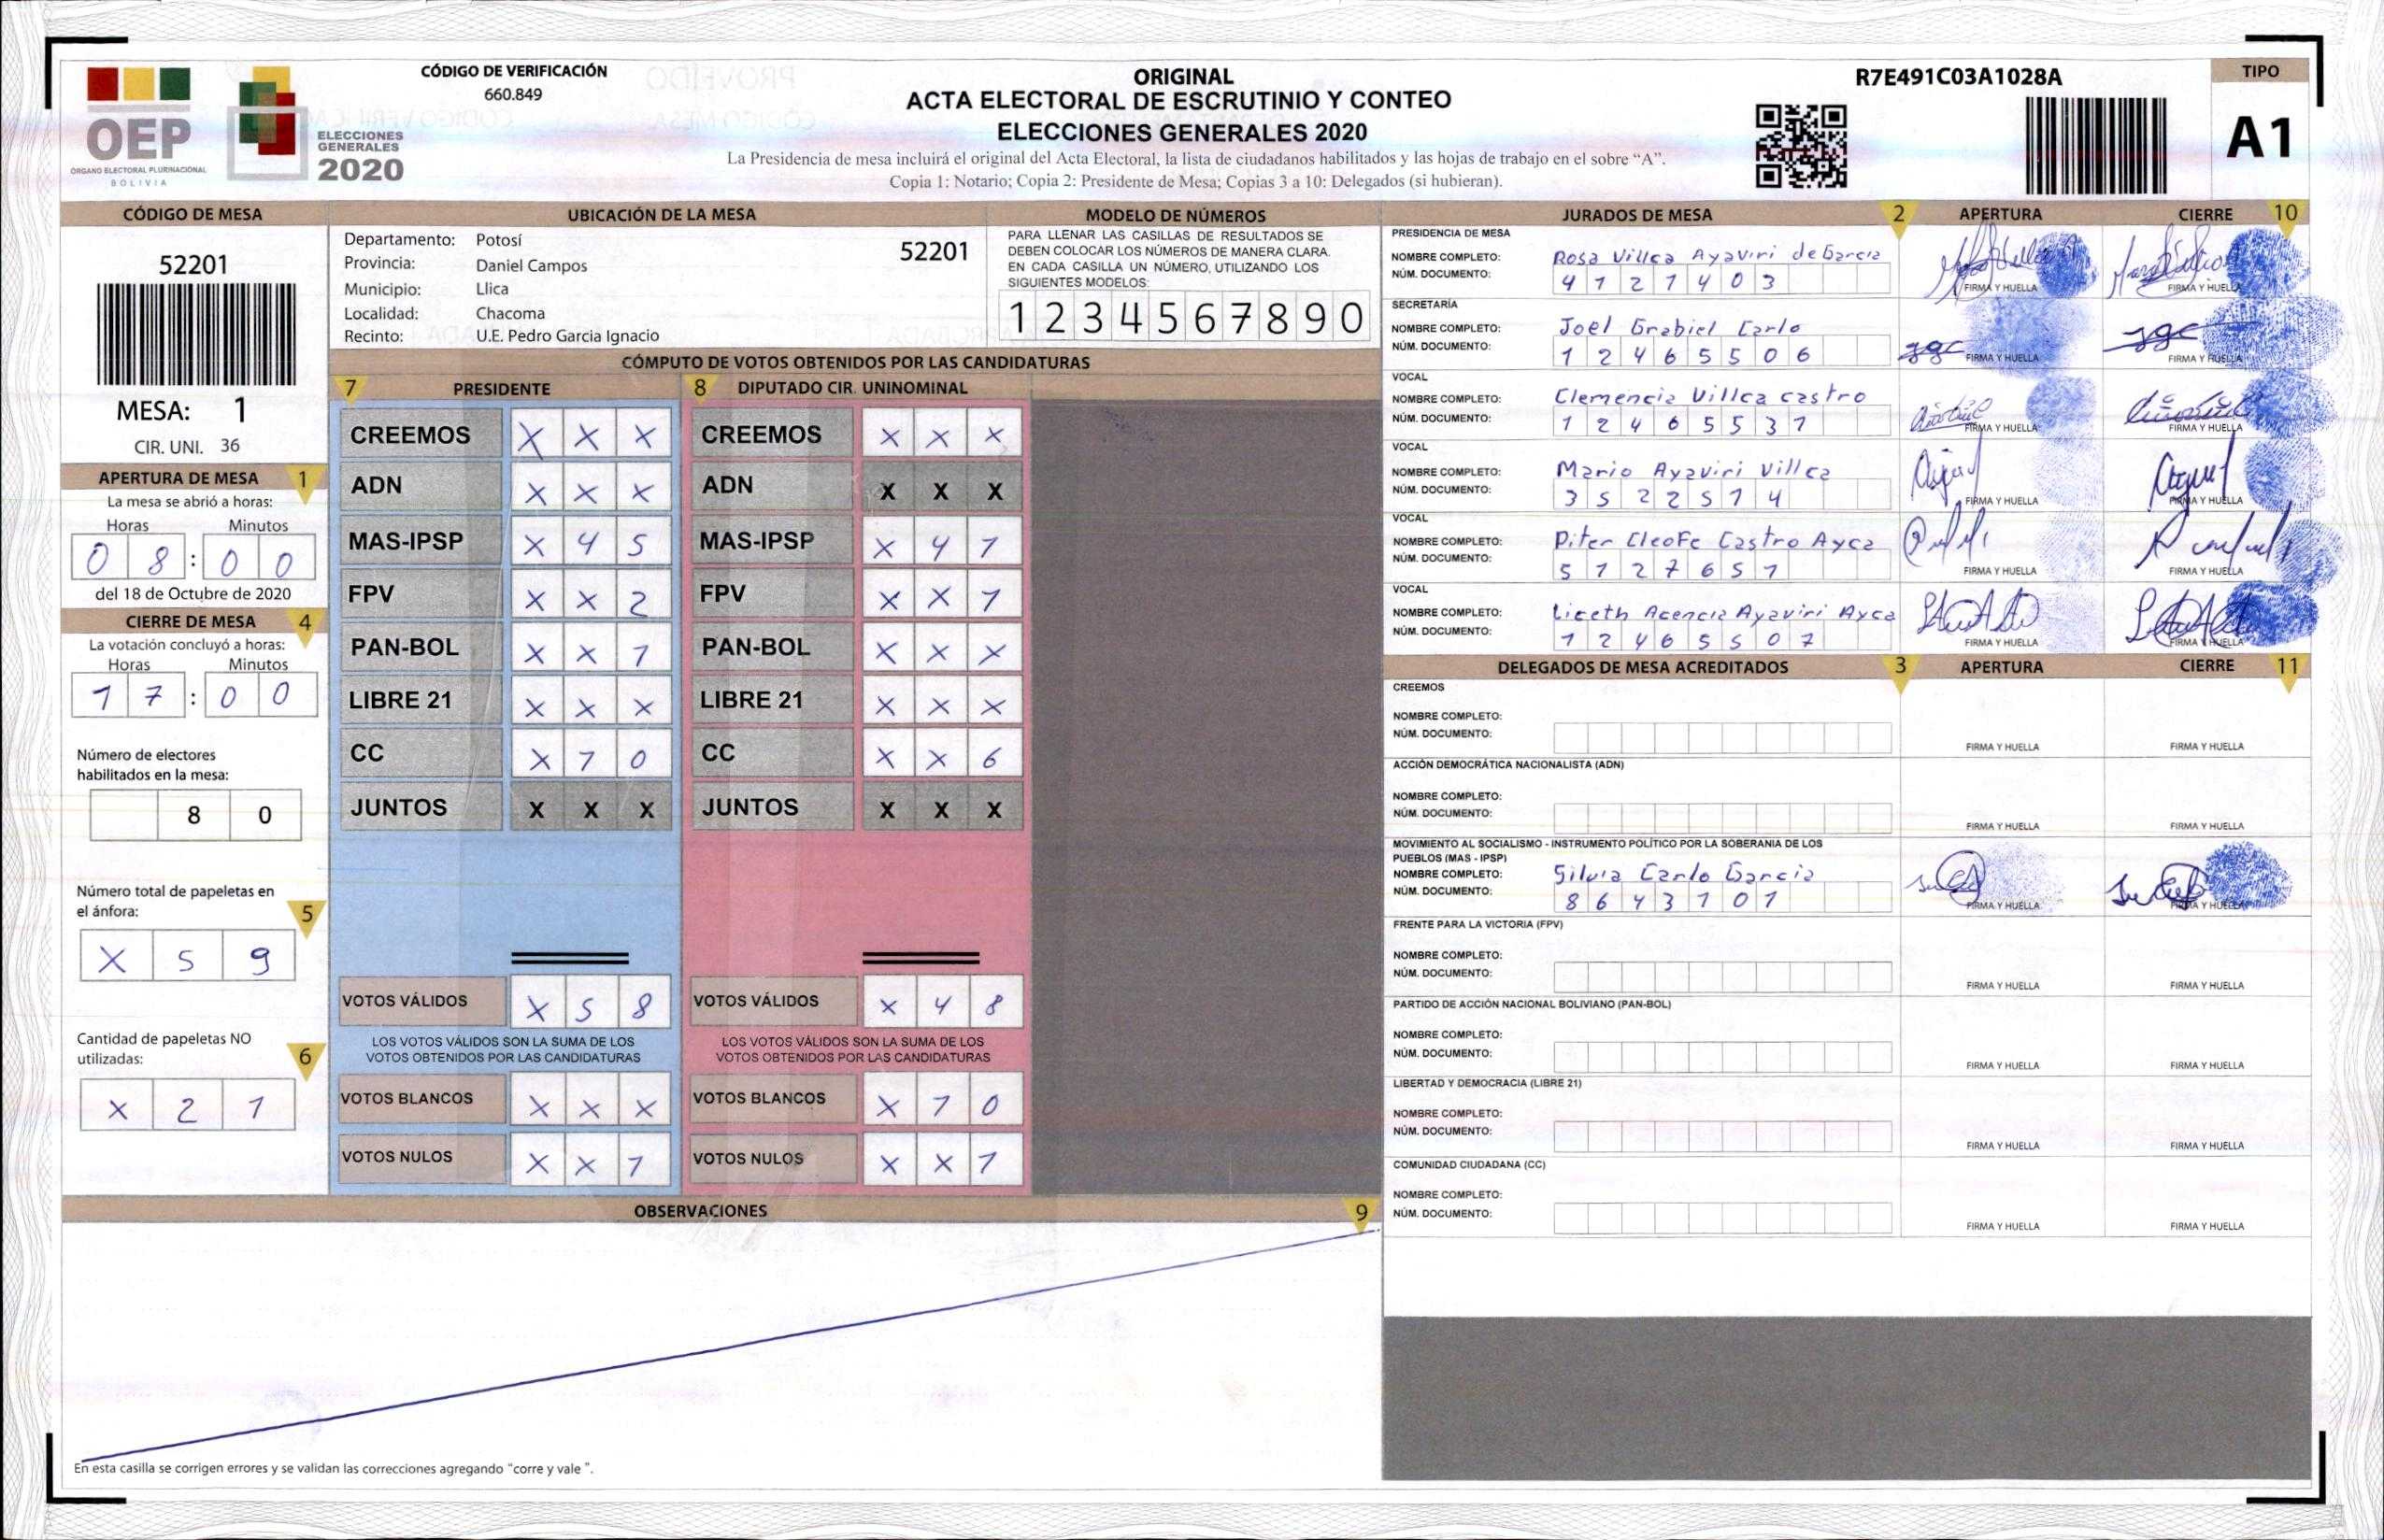 OEP
ÓRGANO ELECTORAL PLURINACIONAL
BOLIVIA
ELECCIONES
GENERALES
2020
CÓDIGO DE VERIFICACIÓN
660.849
ORIGINAL
ACTA ELECTORAL DE ESCRUTINIO Y CONTEO
ELECCIONES GENERALES 2020
La Presidencia de mesa incluirá el original del Acta Electoral, la lista de ciudadanos habilitados y las hojas de trabajo en el sobre “A”.
Copia 1: Notario; Copia 2: Presidente de Mesa; Copias 3 a 10: Delegados (si hubieran).
R7E491C03A1028A
TIPO
A1
CÓDIGO DE MESA
52201
MESA: 1
CIR. UNI. 36
APERTURA DE MESA 1
La mesa se abrió a horas:
Horas Minutos
0 8 : 0 0
del 18 de Octubre de 2020
CIERRE DE MESA 4
La votación concluyó a horas:
Horas Minutos
1 7 : 0 0
Número de electores
habilitados en la mesa:
8 0
Número total de papeletas en
el ánfora: 5
X 5 9
Cantidad de papeletas NO
utilizadas: 6
X 2 1
UBICACIÓN DE LA MESA
Departamento: Potosí
52201
Provincia: Daniel Campos
Municipio: Llica
Localidad: Chacoma
Recinto: U.E. Pedro Garcia Ignacio
MODELO DE NÚMEROS
PARA LLENAR LAS CASILLAS DE RESULTADOS SE
DEBEN COLOCAR LOS NÚMEROS DE MANERA CLARA.
EN CADA CASILLA UN NÚMERO, UTILIZANDO LOS
SIGUIENTES MODELOS:
1 2 3 4 5 6 7 8 9 0
CÓMPUTO DE VOTOS OBTENIDOS POR LAS CANDIDATURAS
7 PRESIDENTE
CREEMOS X X X
ADN X X X
MAS-IPSP X 4 5
FPV X X 2
PAN-BOL X X 1
LIBRE 21 X X X
CC X 1 0
JUNTOS X X X
VOTOS VÁLIDOS X 5 8
LOS VOTOS VÁLIDOS SON LA SUMA DE LOS
VOTOS OBTENIDOS POR LAS CANDIDATURAS
VOTOS BLANCOS X X X
VOTOS NULOS X X 1
8 DIPUTADO CIR. UNINOMINAL
CREEMOS X X X
ADN X X X
MAS-IPSP X 4 1
FPV X X 1
PAN-BOL X X X
LIBRE 21 X X X
CC X X 6
JUNTOS X X X
VOTOS VÁLIDOS X 4 8
LOS VOTOS VÁLIDOS SON LA SUMA DE LOS
VOTOS OBTENIDOS POR LAS CANDIDATURAS
VOTOS BLANCOS X 1 0
VOTOS NULOS X X 1
OBSERVACIONES 9
En esta casilla se corrigen errores y se validan las correcciones agregando “corre y vale ”.
JURADOS DE MESA 2 APERTURA CIERRE 10
PRESIDENCIA DE MESA
NOMBRE COMPLETO: Rosa Villca Ayaviri de Garcia
NÚM. DOCUMENTO: 4 1 2 1 4 0 3
FIRMA Y HUELLA FIRMA Y HUELLA
SECRETARÍA
NOMBRE COMPLETO: Joel Grabiel Carlo
NÚM. DOCUMENTO: 1 2 4 6 5 5 0 6
FIRMA Y HUELLA FIRMA Y HUELLA
VOCAL
NOMBRE COMPLETO: Clemencia Villca castro
NÚM. DOCUMENTO: 1 2 4 6 5 5 3 1
FIRMA Y HUELLA FIRMA Y HUELLA
VOCAL
NOMBRE COMPLETO: Mario Ayaviri Villca
NÚM. DOCUMENTO: 3 5 2 2 5 1 4
FIRMA Y HUELLA FIRMA Y HUELLA
VOCAL
NOMBRE COMPLETO: Piter Cleofe Castro Ayca
NÚM. DOCUMENTO: 5 1 2 7 6 5 1
FIRMA Y HUELLA FIRMA Y HUELLA
VOCAL
NOMBRE COMPLETO: Liceth Acencia Ayaviri Ayca
NÚM. DOCUMENTO: 1 2 4 6 5 5 0 7
FIRMA Y HUELLA FIRMA Y HUELLA
DELEGADOS DE MESA ACREDITADOS 3 APERTURA CIERRE 11
CREEMOS
NOMBRE COMPLETO:
NÚM. DOCUMENTO:
FIRMA Y HUELLA FIRMA Y HUELLA
ACCIÓN DEMOCRÁTICA NACIONALISTA (ADN)
NOMBRE COMPLETO:
NÚM. DOCUMENTO:
FIRMA Y HUELLA FIRMA Y HUELLA
MOVIMIENTO AL SOCIALISMO - INSTRUMENTO POLÍTICO POR LA SOBERANIA DE LOS
PUEBLOS (MAS - IPSP)
NOMBRE COMPLETO: Silvia Carlo Garcia
NÚM. DOCUMENTO: 8 6 4 3 1 0 1
FIRMA Y HUELLA FIRMA Y HUELLA
FRENTE PARA LA VICTORIA (FPV)
NOMBRE COMPLETO:
NÚM. DOCUMENTO:
FIRMA Y HUELLA FIRMA Y HUELLA
PARTIDO DE ACCIÓN NACIONAL BOLIVIANO (PAN-BOL)
NOMBRE COMPLETO:
NÚM. DOCUMENTO:
FIRMA Y HUELLA FIRMA Y HUELLA
LIBERTAD Y DEMOCRACIA (LIBRE 21)
NOMBRE COMPLETO:
NÚM. DOCUMENTO:
FIRMA Y HUELLA FIRMA Y HUELLA
COMUNIDAD CIUDADANA (CC)
NOMBRE COMPLETO:
NÚM. DOCUMENTO:
FIRMA Y HUELLA FIRMA Y HUELLA